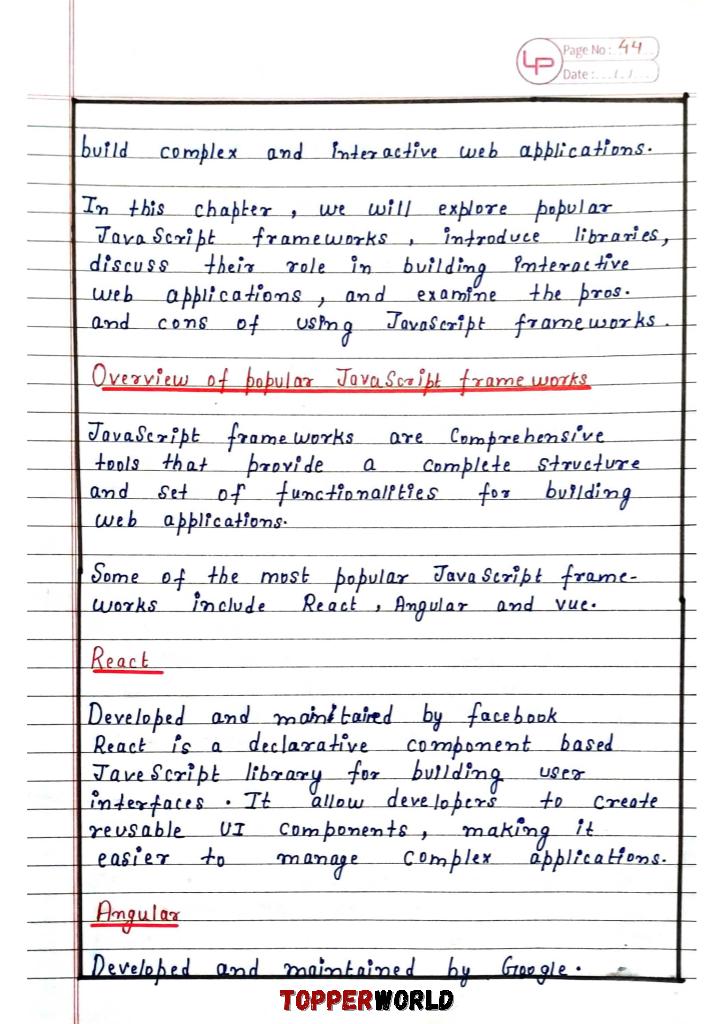 LP Page No: 44
Date: .../../...
build complex and interactive web applications.
In this chapter, we will explore popular
JavaScript frameworks, introduce libraries,
discuss their role in building interactive
web applications, and examine the pros.
and cons of using JavaScript frameworks.
Overview of popular JavaScript frameworks
JavaScript frameworks are Comprehensive
tools that provide a complete structure
and set of functionalities for building
web applications.
Some of the most popular JavaScript frame-
works include React, Angular and vue.
React
Developed and mainitaired by facebook
React is a declarative component based
JaveScript library for building user
interfaces. It allow developers to create
reusable UI components, making it
easier to manage complex applications.
Angular
Developed and maintained by Google.
TOPPERWORLD